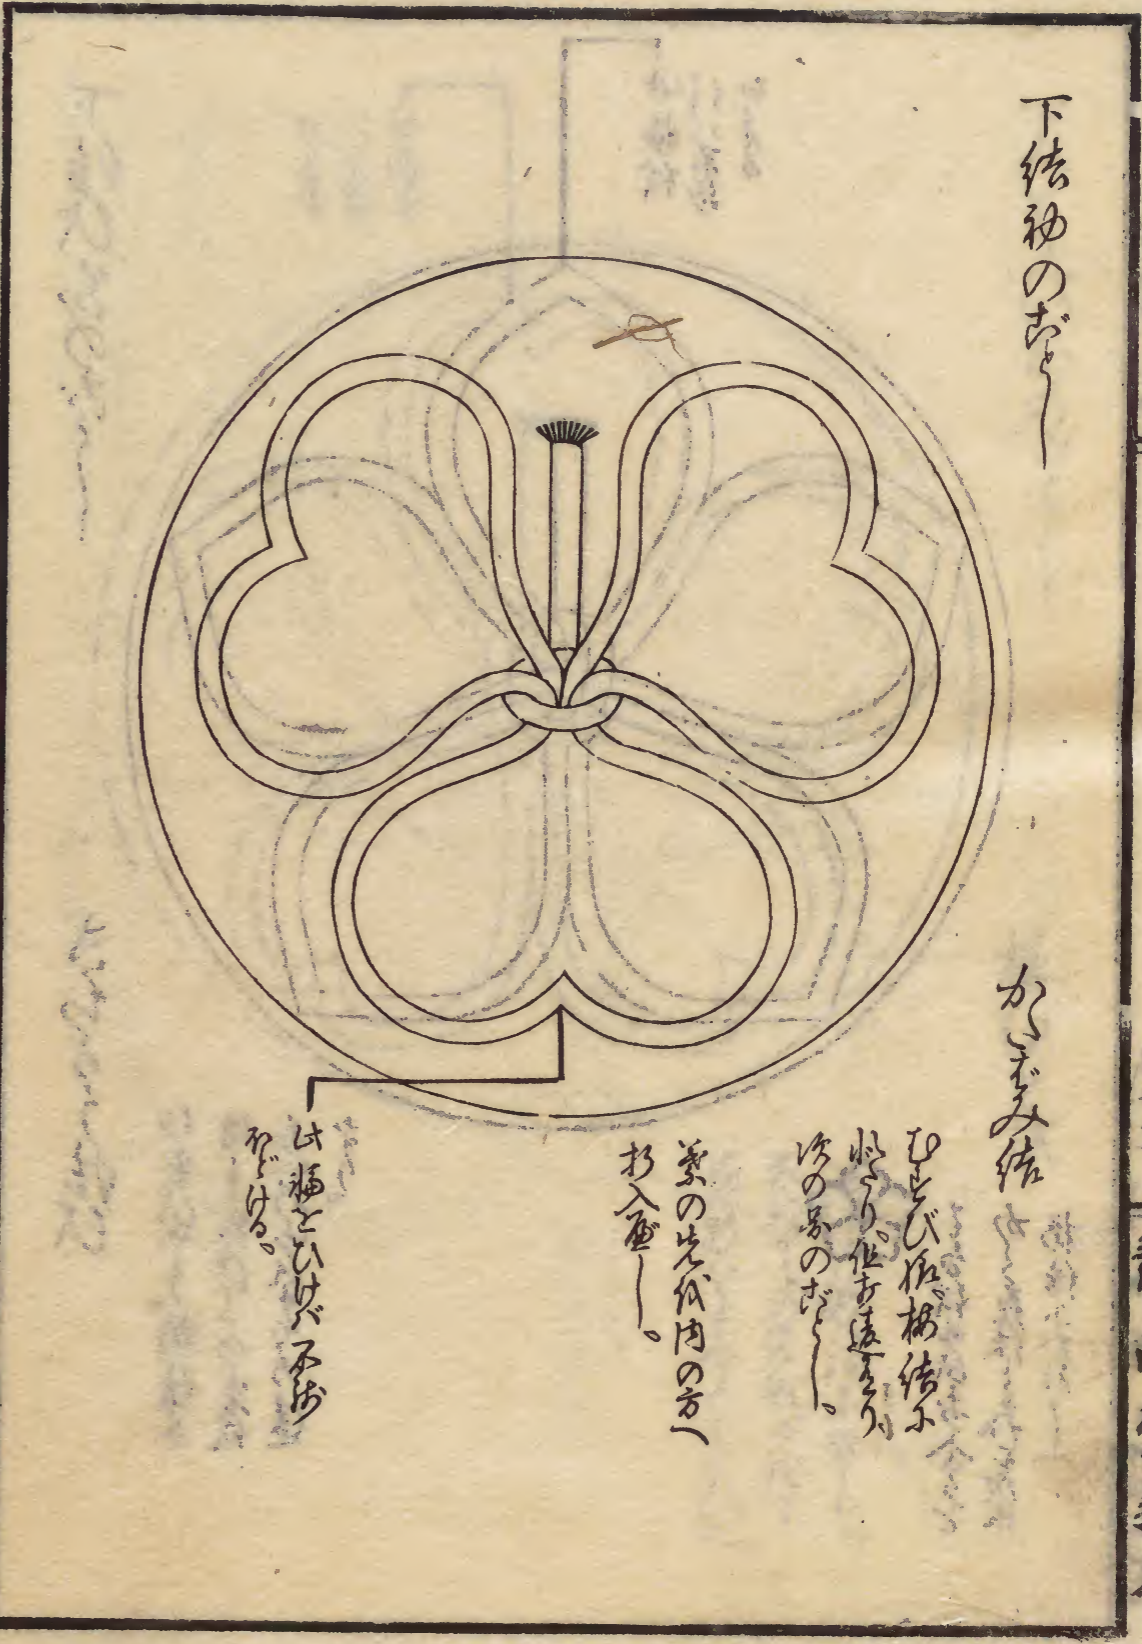 下結初のごとし
かたばみ結
むすび様、梅結に
似たり。但相違あり、
次の図のごとし。
葉の先を内の方へ
折入置べし。
此端をひけば不残
ほどける。